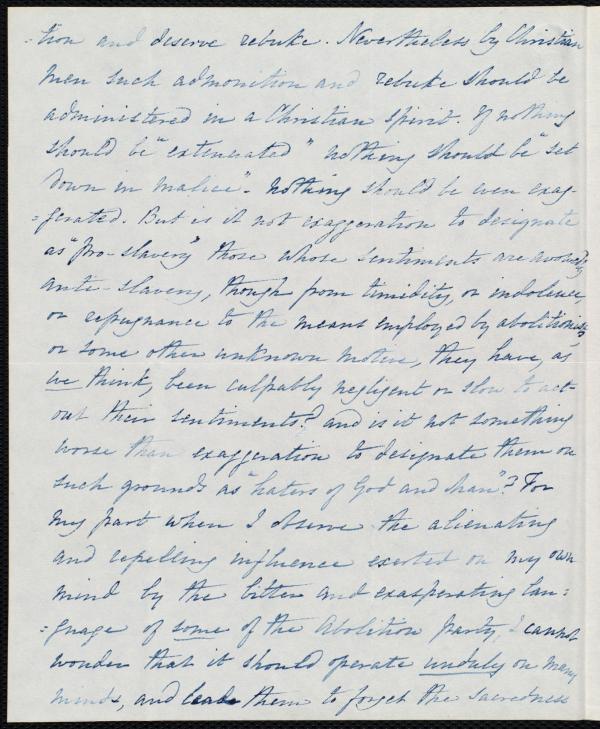 -tion and deserve rebuke. Nevertheless by Christian
men such admonition and rebuke should be
administered in a Christian spirit. If nothing
should be "extenuated" nothing should be "set
down in malice" - nothing should be even exag-
=gerated. But is it not exaggeration to designate
as "pro-slavery" those whose sentiments are avowedly
anti-slavery, though from timidity, or indolence,
or repugnance to the means employed by abolitionists,
or some other unknown motive, they have, as
we think, been culpably negligent or slow to act-
out their sentiments? and is it not something
worse than exaggeration to designate them on
such grounds as "haters of God and Man"? For
my part when I observe the alienating
and repelling influence exerted on my own
mind by the bitter and exasperating lan=
=guage of some of the Abolition party, I cannot
wonder that it should operate unduly on many
minds, and lead them to forget the sacredness